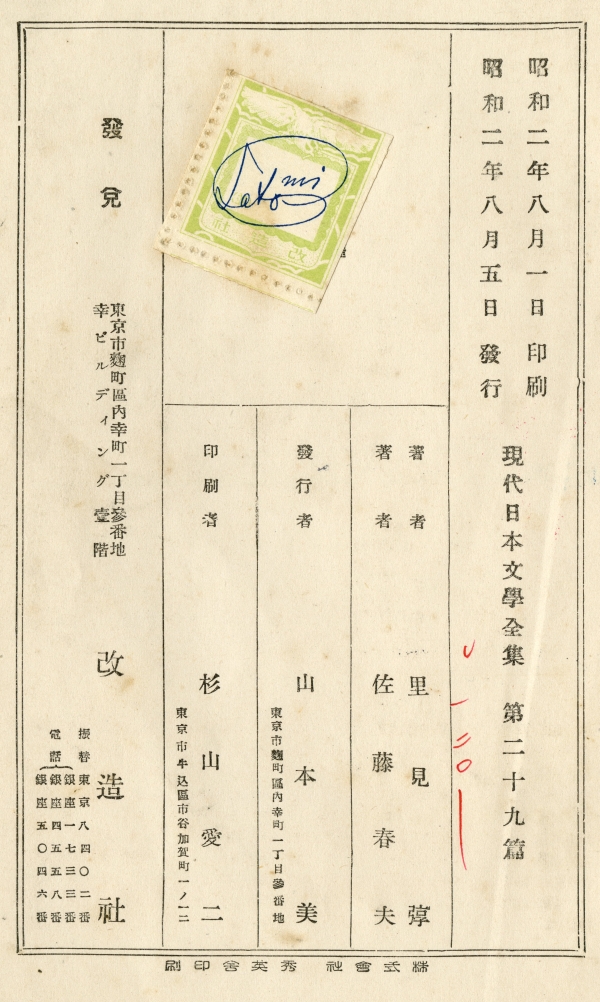 昭和二年八月一日印刷
昭和二年八月五日發行
現代日本文學全集 第二十九篇
著者 里見弴
著者 佐藤春夫
發行者 山本美
東京市麴町區內幸町一丁目參番地
印刷者 杉山愛二
東京市牛込區市谷加賀町一ノ一二
改造社
Satomi
發兌
東京市麴町區內幸町一丁目參番地
幸ビルディング壹階
改造社
振替東京八四〇二番
電話
銀座一七三三番
銀座四五五八番
銀座五〇四六番
株式會社 秀英舍印刷